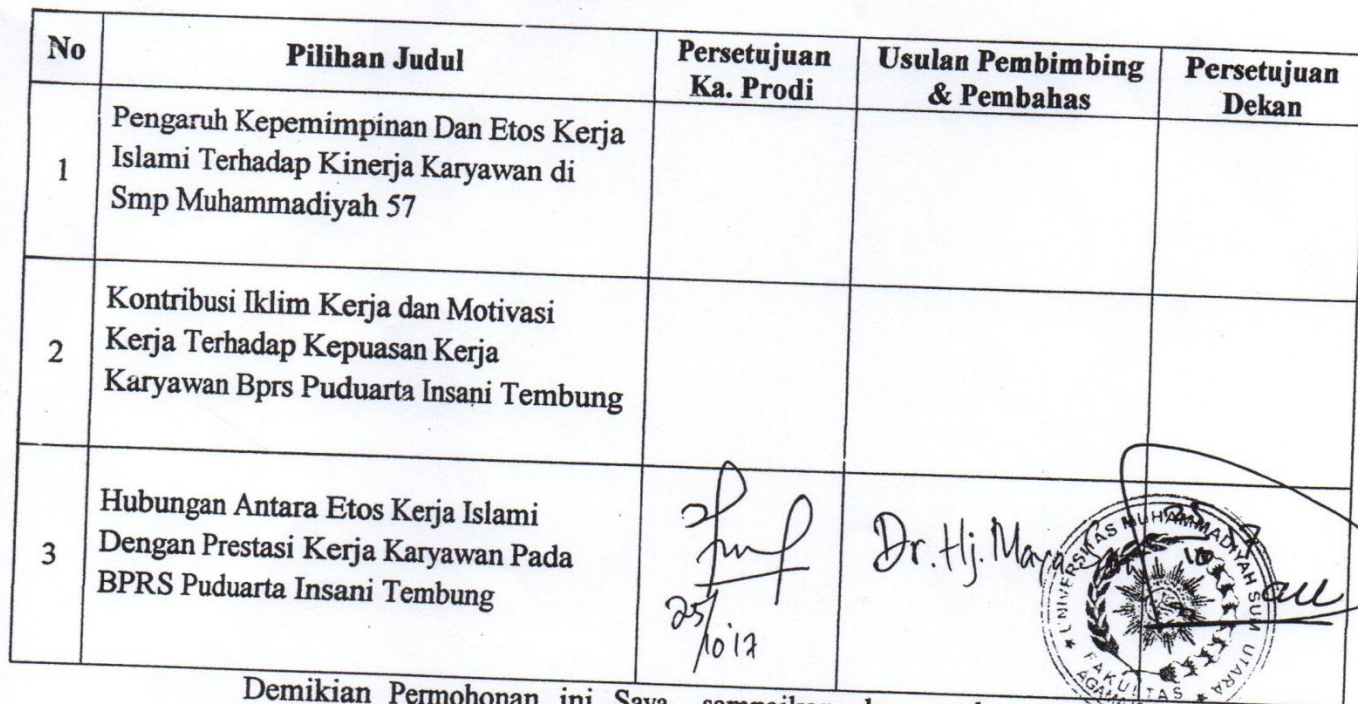 No
Pilihan Judul
Persetujuan
Ka. Prodi
Usulan Pembimbing
& Pembahas
Persetujuan
Dekan
1
Pengaruh Kepemimpinan Dan Etos Kerja
Islami Terhadap Kinerja Karyawan di
Smp Muhammadiyah 57
2
Kontribusi Iklim Kerja dan Motivasi
Kerja Terhadap Kepuasan Kerja
Karyawan Bprs Puduarta Insani Tembung
3
Hubungan Antara Etos Kerja Islami
Dengan Prestasi Kerja Karyawan Pada
BPRS Puduarta Insani Tembung
25/10'17
Dr. Hj. Mara
UNIVERSITAS MUHAMMADIYAH SUM UTARA
FAKULTAS
Demikian Permohonan ini Saya